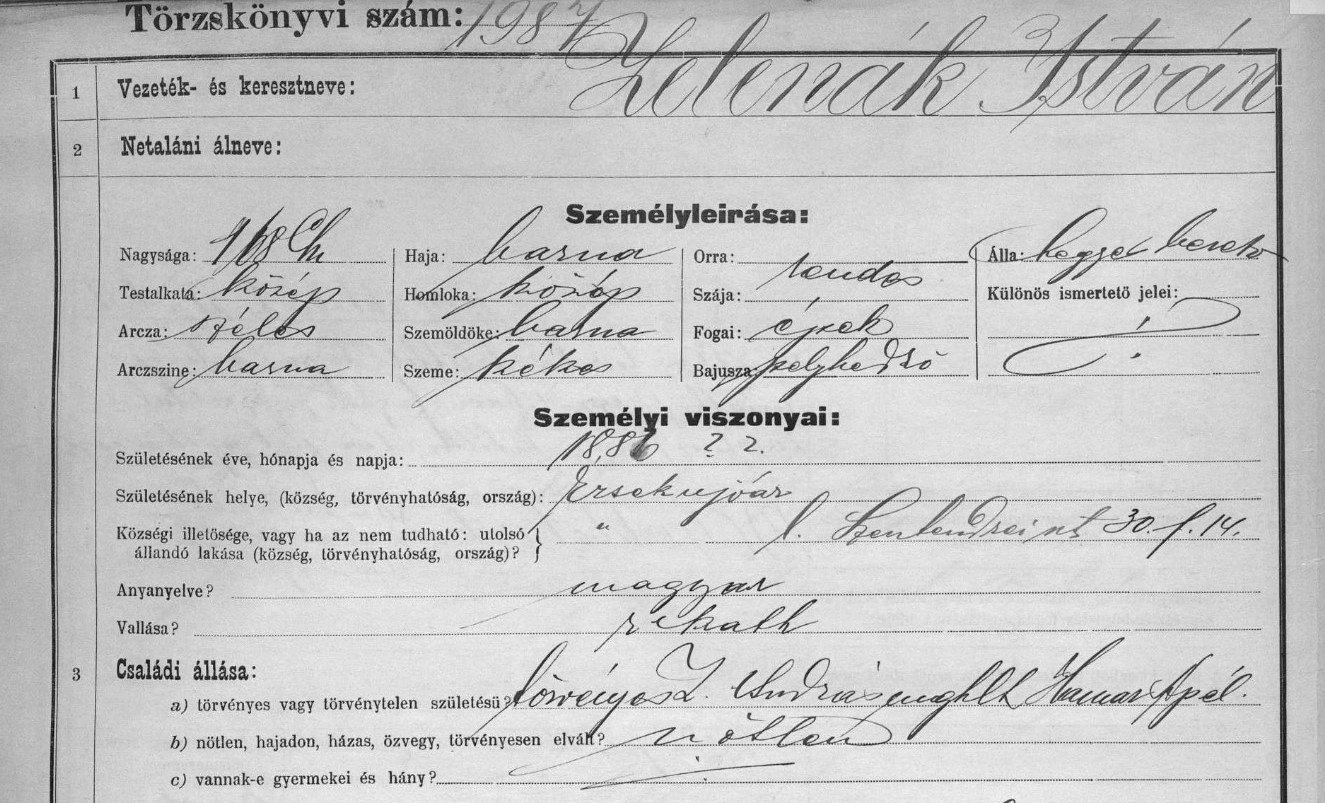 Törzskönyvi szám: 1987
1 Vezeték- és keresztneve: Zelenák István
2 Netaláni álneve:
Személyleirása:
Nagysága: 168 Cm Haja: barna Orra: rendes Álla: hegyes
Testalkata: közép Homloka: közép Szája: Különös ismertető jelei:
Arcza: széles Szemöldöke: barna Fogai: épek
Arczszine: barna Szeme: kékes Bajusza: pelyhedző
Személyi viszonyai:
Születésének éve, hónapja és napja: 1886 ? ?.
Születésének helye, (község, törvényhatóság, ország): Érsekujvár
Községi illetősége, vagy ha az nem tudható: utolsó " l. Szentendrei 30.
állandó lakása (község, törvényhatóság, ország)?
Anyanyelve? magyar
Vallása? r. kath
3 Családi állása:
a) törvényes vagy törvénytelen születésü? törvényes Z. András Hamar
b) nötlen, hajadon, házas, özvegy, törvényesen elvált? nőtlen
c) vannak-e gyermekei és hány?